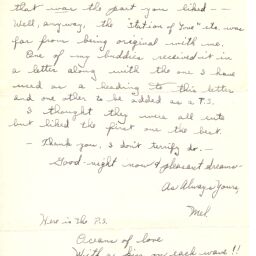 that was the part you liked - -
Well, anyway, the "Station of Love" etc. was
far from being original with me.
One of my buddies received it in
a letter along with the one I have
used as a heading to this letter
and one other to be added as a P.S.
I thought they were all cute
but liked the first one the best.
- Thank you, I don't terrify do. -
Good-night now & pleasant dreams-
As Always Yours,
Mel
Here is the P.S.
Oceans of love
With a kiss on each wave!!